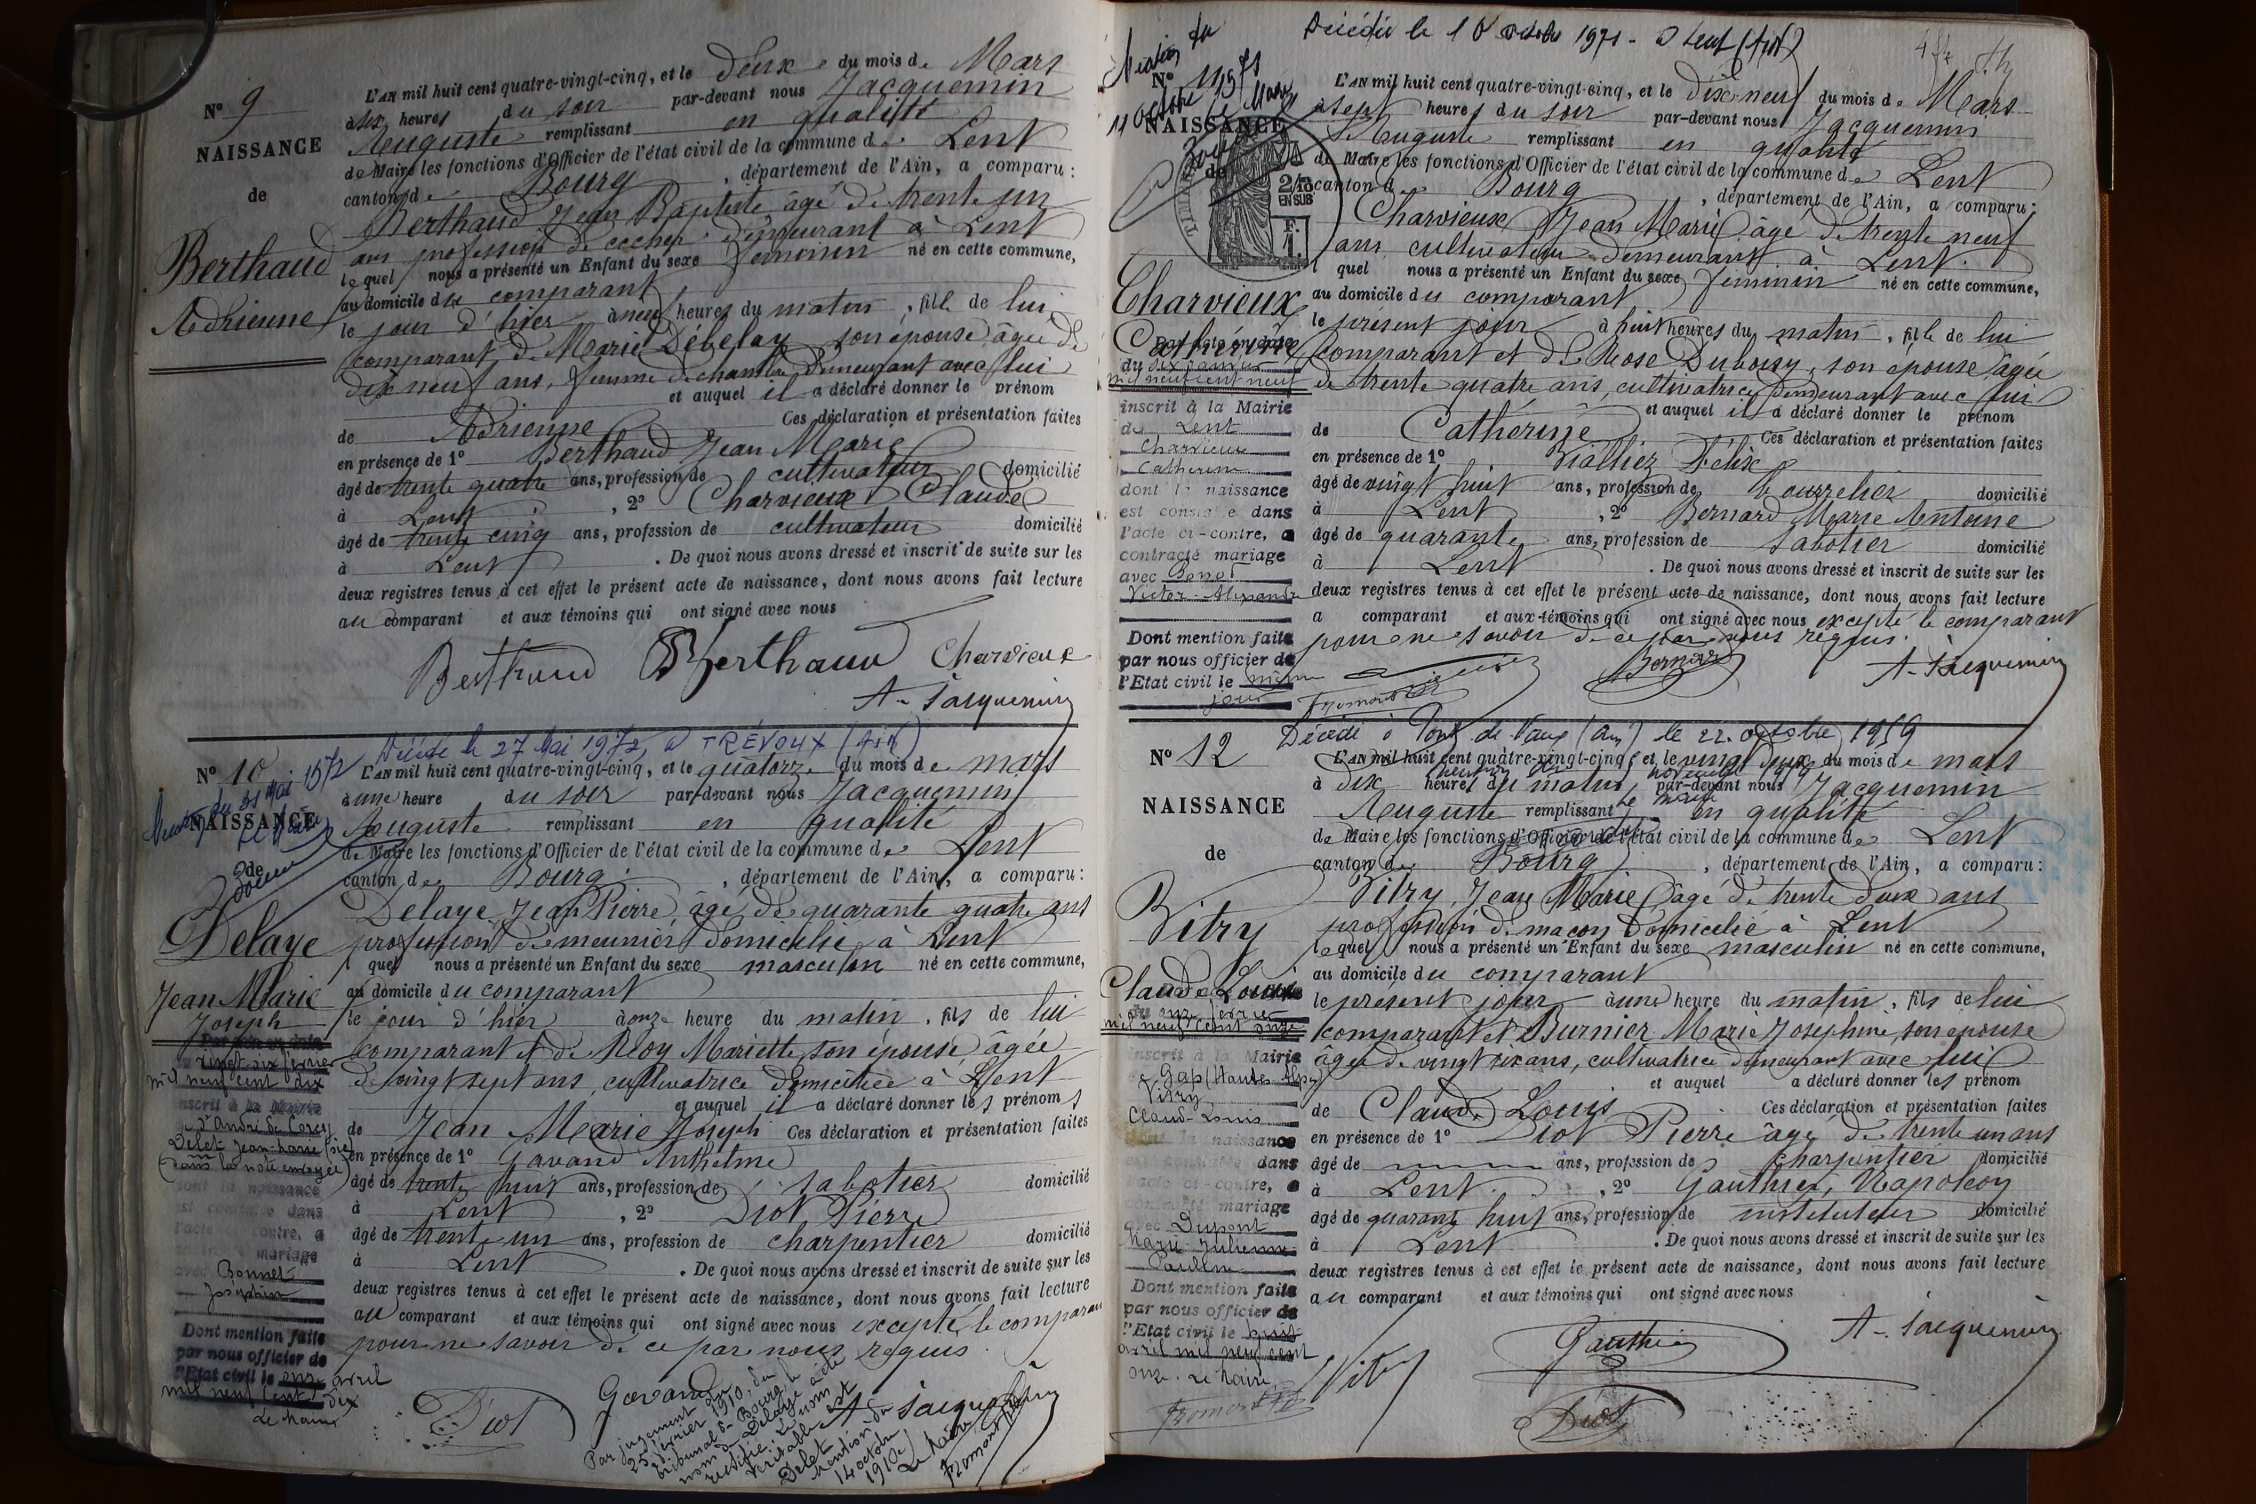 N° 9
NAISSANCE
de
Berthaud
Adrienne
L'AN mil huit cent quatre-vingt-cinq, et le deux du mois de Mars
à six heures du soir par-devant nous Jacquemin
Auguste remplissant en qualité
de Maire les fonctions d'Officier de l'état civil de la commune de Lent
canton de Bourg, département de l'Ain, a comparu :
Berthaud Jean Baptiste âgé de trente un
ans profession de cocher demeurant à Lent
lequel nous a présenté un Enfant du sexe féminin né en cette commune,
au domicile du comparant
le jour d'hier à neuf heures du matin, fille de lui
comparant, de Marie Débelay son épouse âgée de
dix neuf ans, femme de chambre demeurant avec lui
et auquel il a déclaré donner le prénom
de Adrienne Ces déclaration et présentation faites
en présence de 1° Berthaud Jean Marie
âgé de trente quatre ans, profession de cultivateur domicilié
à Lent, 2° Charvieux Claude
âgé de trente cinq ans, profession de cultivateur domicilié
à Lent. De quoi nous avons dressé et inscrit de suite sur les
deux registres tenus à cet effet le présent acte de naissance, dont nous avons fait lecture
au comparant et aux témoins qui ont signé avec nous
Berthaud Berthaud Charvieux
A. Jacquemin
Décédé le 27 Mai 1972 à TRÉVOUX (Ain)
N° 10
NAISSANCE
de
Delaye
Jean Marie
Joseph
vingt-six février
mil neuf cent dix
inscrit à la Mairie
St André de Corcy
Delet Jean-Marie (sic)
(dans la note envoyée)
dont la naissance
est constatée dans
l'acte ci-contre, a
mariage
avec Bonnet
Joséphine
Dont mention faite
par nous officier de
l'Etat civil le onze avril
mil neuf cent dix
Le Maire
L'AN mil huit cent quatre-vingt-cinq, et le quatorze du mois de mars
à une heure du soir par-devant nous Jacquemin
Auguste remplissant en qualité
de Maire les fonctions d'Officier de l'état civil de la commune de Lent
canton de Bourg, département de l'Ain, a comparu :
Delaye Jean Pierre, âgé de quarante quatre ans
profession de meunier domicilié à Lent
lequel nous a présenté un Enfant du sexe masculin né en cette commune,
au domicile du comparant
le jour d'hier à onze heure du matin, fils de lui
comparant et de Reloy Mariette son épouse âgée
de vingt sept ans, cultivatrice domiciliée à Lent
et auquel il a déclaré donner les prénoms
de Jean Marie Joseph Ces déclaration et présentation faites
en présence de 1° Gavand Anthelme
âgé de trente huit ans, profession de sabotier domicilié
à Lent, 2° Diot Pierre
âgé de trente un ans, profession de charpentier domicilié
à Lent. De quoi nous avons dressé et inscrit de suite sur les
deux registres tenus à cet effet le présent acte de naissance, dont nous avons fait lecture
au comparant et aux témoins qui ont signé avec nous excepté le comparant
pour ne savoir de ce par nous requis.
Diot Gavand A. Jacquemin
Par jugement du
25 février 1910, du
tribunal de Bourg, le
nom de Delaye a été
rectifié. Le nom
véritable est
Delet
Mention du
14 octobre
1910
Le Maire
Fromont
Décédée le 10 octobre 1971 - à Lent (Ain)
N° 11
NAISSANCE
de
2/10 EN SUS
F. 1.
Charvieux
Catherine
Par acte en date
du dix janvier
mil neuf cent neuf
inscrit à la Mairie
de Lent
Charvieux
Catherine
dont la naissance
est constatée dans
l'acte ci-contre, a
contracté mariage
avec Benoît
Victor-Alexandre
Dont mention faite
par nous officier de
l'Etat civil le même
jour
L'AN mil huit cent quatre-vingt-cinq, et le dix-neuf du mois de Mars
à sept heures du soir par-devant nous Jacquemin
Auguste remplissant en qualité
de Maire les fonctions d'Officier de l'état civil de la commune de Lent
canton de Bourg, département de l'Ain, a comparu :
Charvieux Jean Marie âgé de trente neuf
ans cultivateur demeurant à Lent.
lequel nous a présenté un Enfant du sexe féminin né en cette commune,
au domicile du comparant
le présent jour à huit heures du matin, fille de lui
comparant et de Rose Duboisy, son épouse âgée
de trente quatre ans, cultivatrice demeurant avec lui
et auquel il a déclaré donner le prénom
de Catherine Ces déclaration et présentation faites
en présence de 1° Vialliez Félix
âgé de vingt huit ans, profession de bourrelier domicilié
à Lent, 2° Bernard Marie Antoine
âgé de quarante ans, profession de sabotier domicilié
à Lent. De quoi nous avons dressé et inscrit de suite sur les
deux registres tenus à cet effet le présent acte de naissance, dont nous avons fait lecture
a comparant et aux témoins qui ont signé avec nous excepté le comparant
pour ne savoir de ce par nous requis.
Bernard A. Jacquemin
Décédé à Pont de Vaux (Ain) le 22 octobre 1959
N° 12
NAISSANCE
de
Vitry
Claude Louis
du onze février
mil neuf cent onze
inscrit à la Mairie
de Gap (Hautes-Alpes)
Vitry
Claude-Louis
dont la naissance
est constatée dans
l'acte ci-contre, a
contracté mariage
avec Dupont
Marie Julienne
Pauline
Dont mention faite
par nous officier de
l'Etat civil le huit
avril mil neuf cent
onze. Le Maire,
Fromont
L'AN mil huit cent quatre-vingt-cinq, et le vingt deux du mois de mars
à dix heures du matin par-devant nous Jacquemin
Auguste remplissant en qualité
de Maire les fonctions d'Officier de l'état civil de la commune de Lent
canton de Bourg, département de l'Ain, a comparu :
Vitry Jean Marie âgé de trente deux ans
profession de maçon domicilié à Lent
lequel nous a présenté un Enfant du sexe masculin né en cette commune,
au domicile du comparant
le présent jour à une heure du matin, fils de lui
comparant et Burnier Marie Joséphine, son épouse
âgée de vingt six ans, cultivatrice demeurant avec lui
et auquel a déclaré donner les prénom
de Claude Louis Ces déclaration et présentation faites
en présence de 1° Diot Pierre âgé de trente un ans
âgé de ans, profession de charpentier domicilié
à Lent, 2° Gauthier, Napoléon
âgé de quarante huit ans, profession de instituteur domicilié
à Lent. De quoi nous avons dressé et inscrit de suite sur les
deux registres tenus à cet effet le présent acte de naissance, dont nous avons fait lecture
au comparant et aux témoins qui ont signé avec nous
Vitry Gauthier A. Jacquemin
Diot